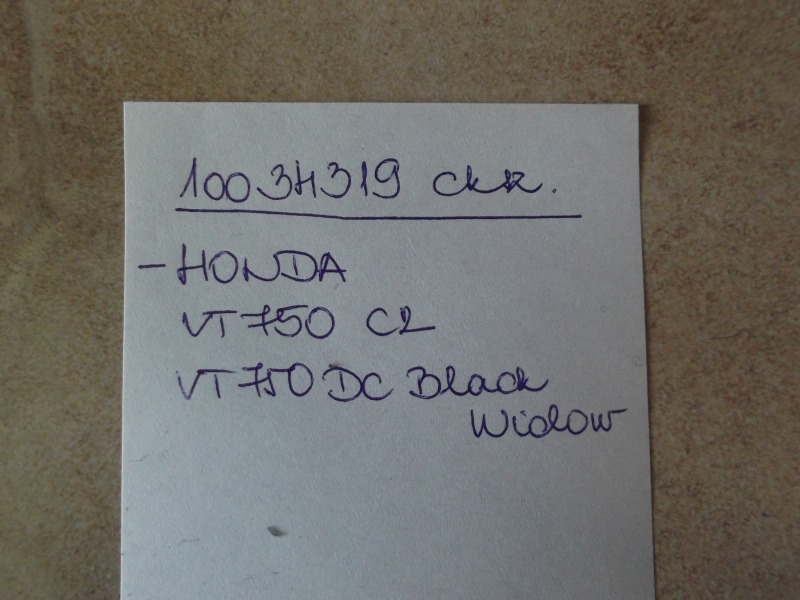 10034319 ckk.
- HONDA
VT750 C2
VT750 DC Black
Widow